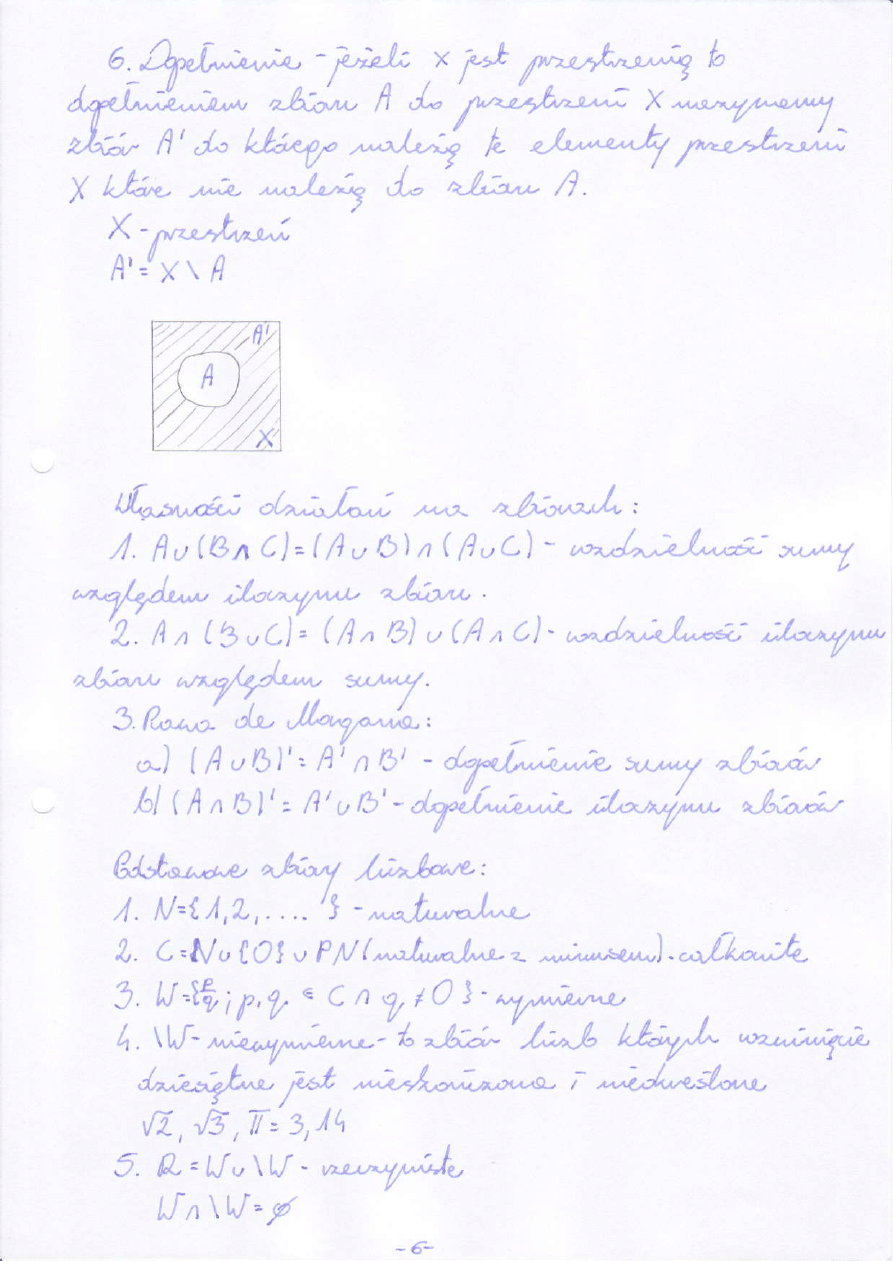 6. Dopełnienie - jeżeli x jest przestrzenią to
dopełnieniem zbioru A do przestrzeni X nazywamy
zbiór A' do którego należią te elementy przestrzeni
X które nie należią do zbioru A.
X - przestrzeń
A' = X \ A
A'
A
X
Własności działań na zbiorach:
1. A∪(B∩C)=(A∪B)∩(A∪C) - rozdzielność sumy
względem iloczynu zbioru.
2. A∩(B∪C)=(A∩B)∪(A∩C) - rozdzielność iloczynu
zbioru względem sumy.
3. Prawa de Morgana:
a) (A∪B)' = A'∩B' - dopełnienie sumy zbiorów
b) (A∩B)' = A'∪B' - dopełnienie iloczynu zbiorów
Podstawowe zbiory liczbowe:
1. N={1,2,....} - naturalne
2. C=N∪{0}∪PN (naturalne z minusem) - całkowite
3. W={p/q ; p,q ∈ C ∩ q ≠ 0} - wymierne
4. \W - niewymierne - to zbiór liczb których rozwinięcie
dziesiętne jest nieskończone i nieokreślone
√2, √3, π = 3,14
5. R = W∪\W - rzeczywiste
W∩\W=∅
-6-